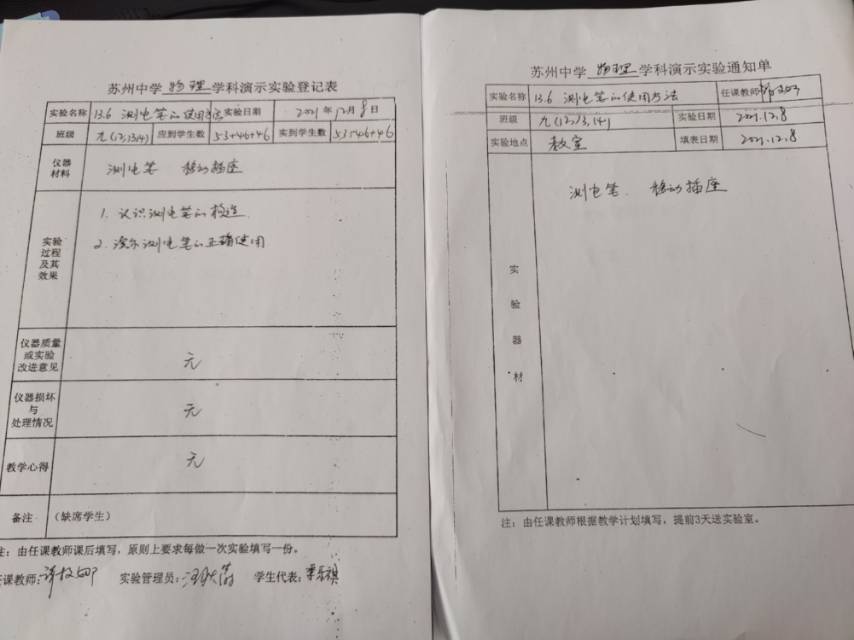 苏州中学 物理 学科演示实验登记表
实验名称 13.6 测电笔的使用方法 实验日期 2021年12月8日
班级 九(12,13,14) 应到学生数 53+46+46 实到学生数 53+46+46
仪器材料 测电笔 移动插座
实验过程及其效果
1. 认识测电笔的构造
2. 演示测电笔的正确使用
仪器质量或实验改进意见 无
仪器损坏与处理情况 无
教学心得 无
备注 (缺席学生)
注:由任课教师课后填写,原则上要求每做一次实验填写一份。
任课教师: 实验管理员: 学生代表:
苏州中学 物理 学科演示实验通知单
实验名称 13.6 测电笔的使用方法 任课教师
班级 九(12,13,14) 实验日期 2021.12.8
实验地点 教室 填表日期 2021.12.8
实验器材
测电笔、移动插座
注:由任课教师根据教学计划填写,提前3天送实验室。